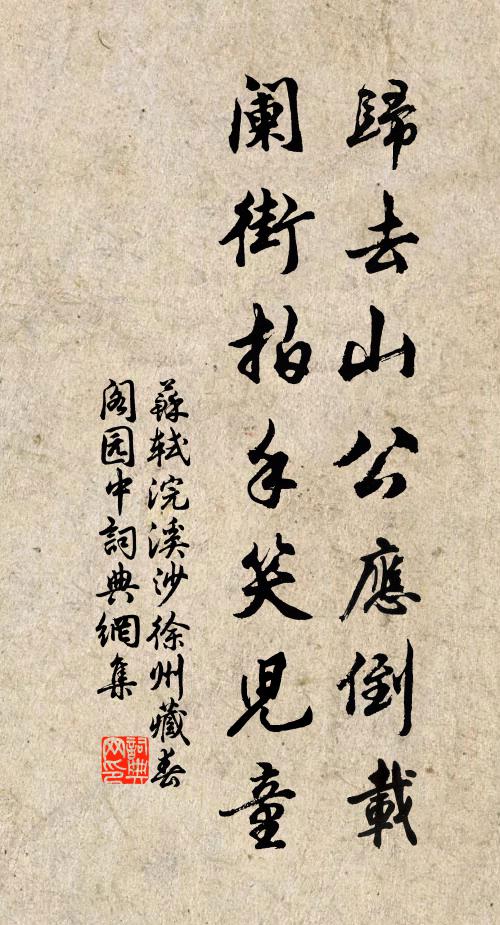 歸去山公應倒載
阑街拍手笑兒童
蘇軾浣溪沙徐州藏春
阁园中詞典網集
詞典网印